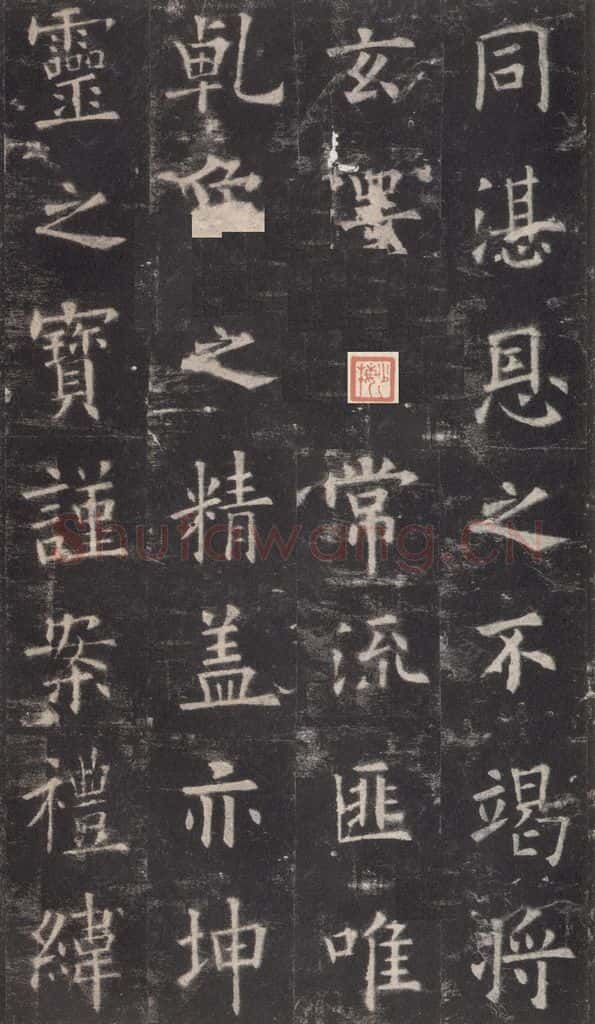 同湛恩之不竭將
玄澤常流匪唯
乹之精盖亦坤
靈之寶謹案禮緯
Shufawang.CN